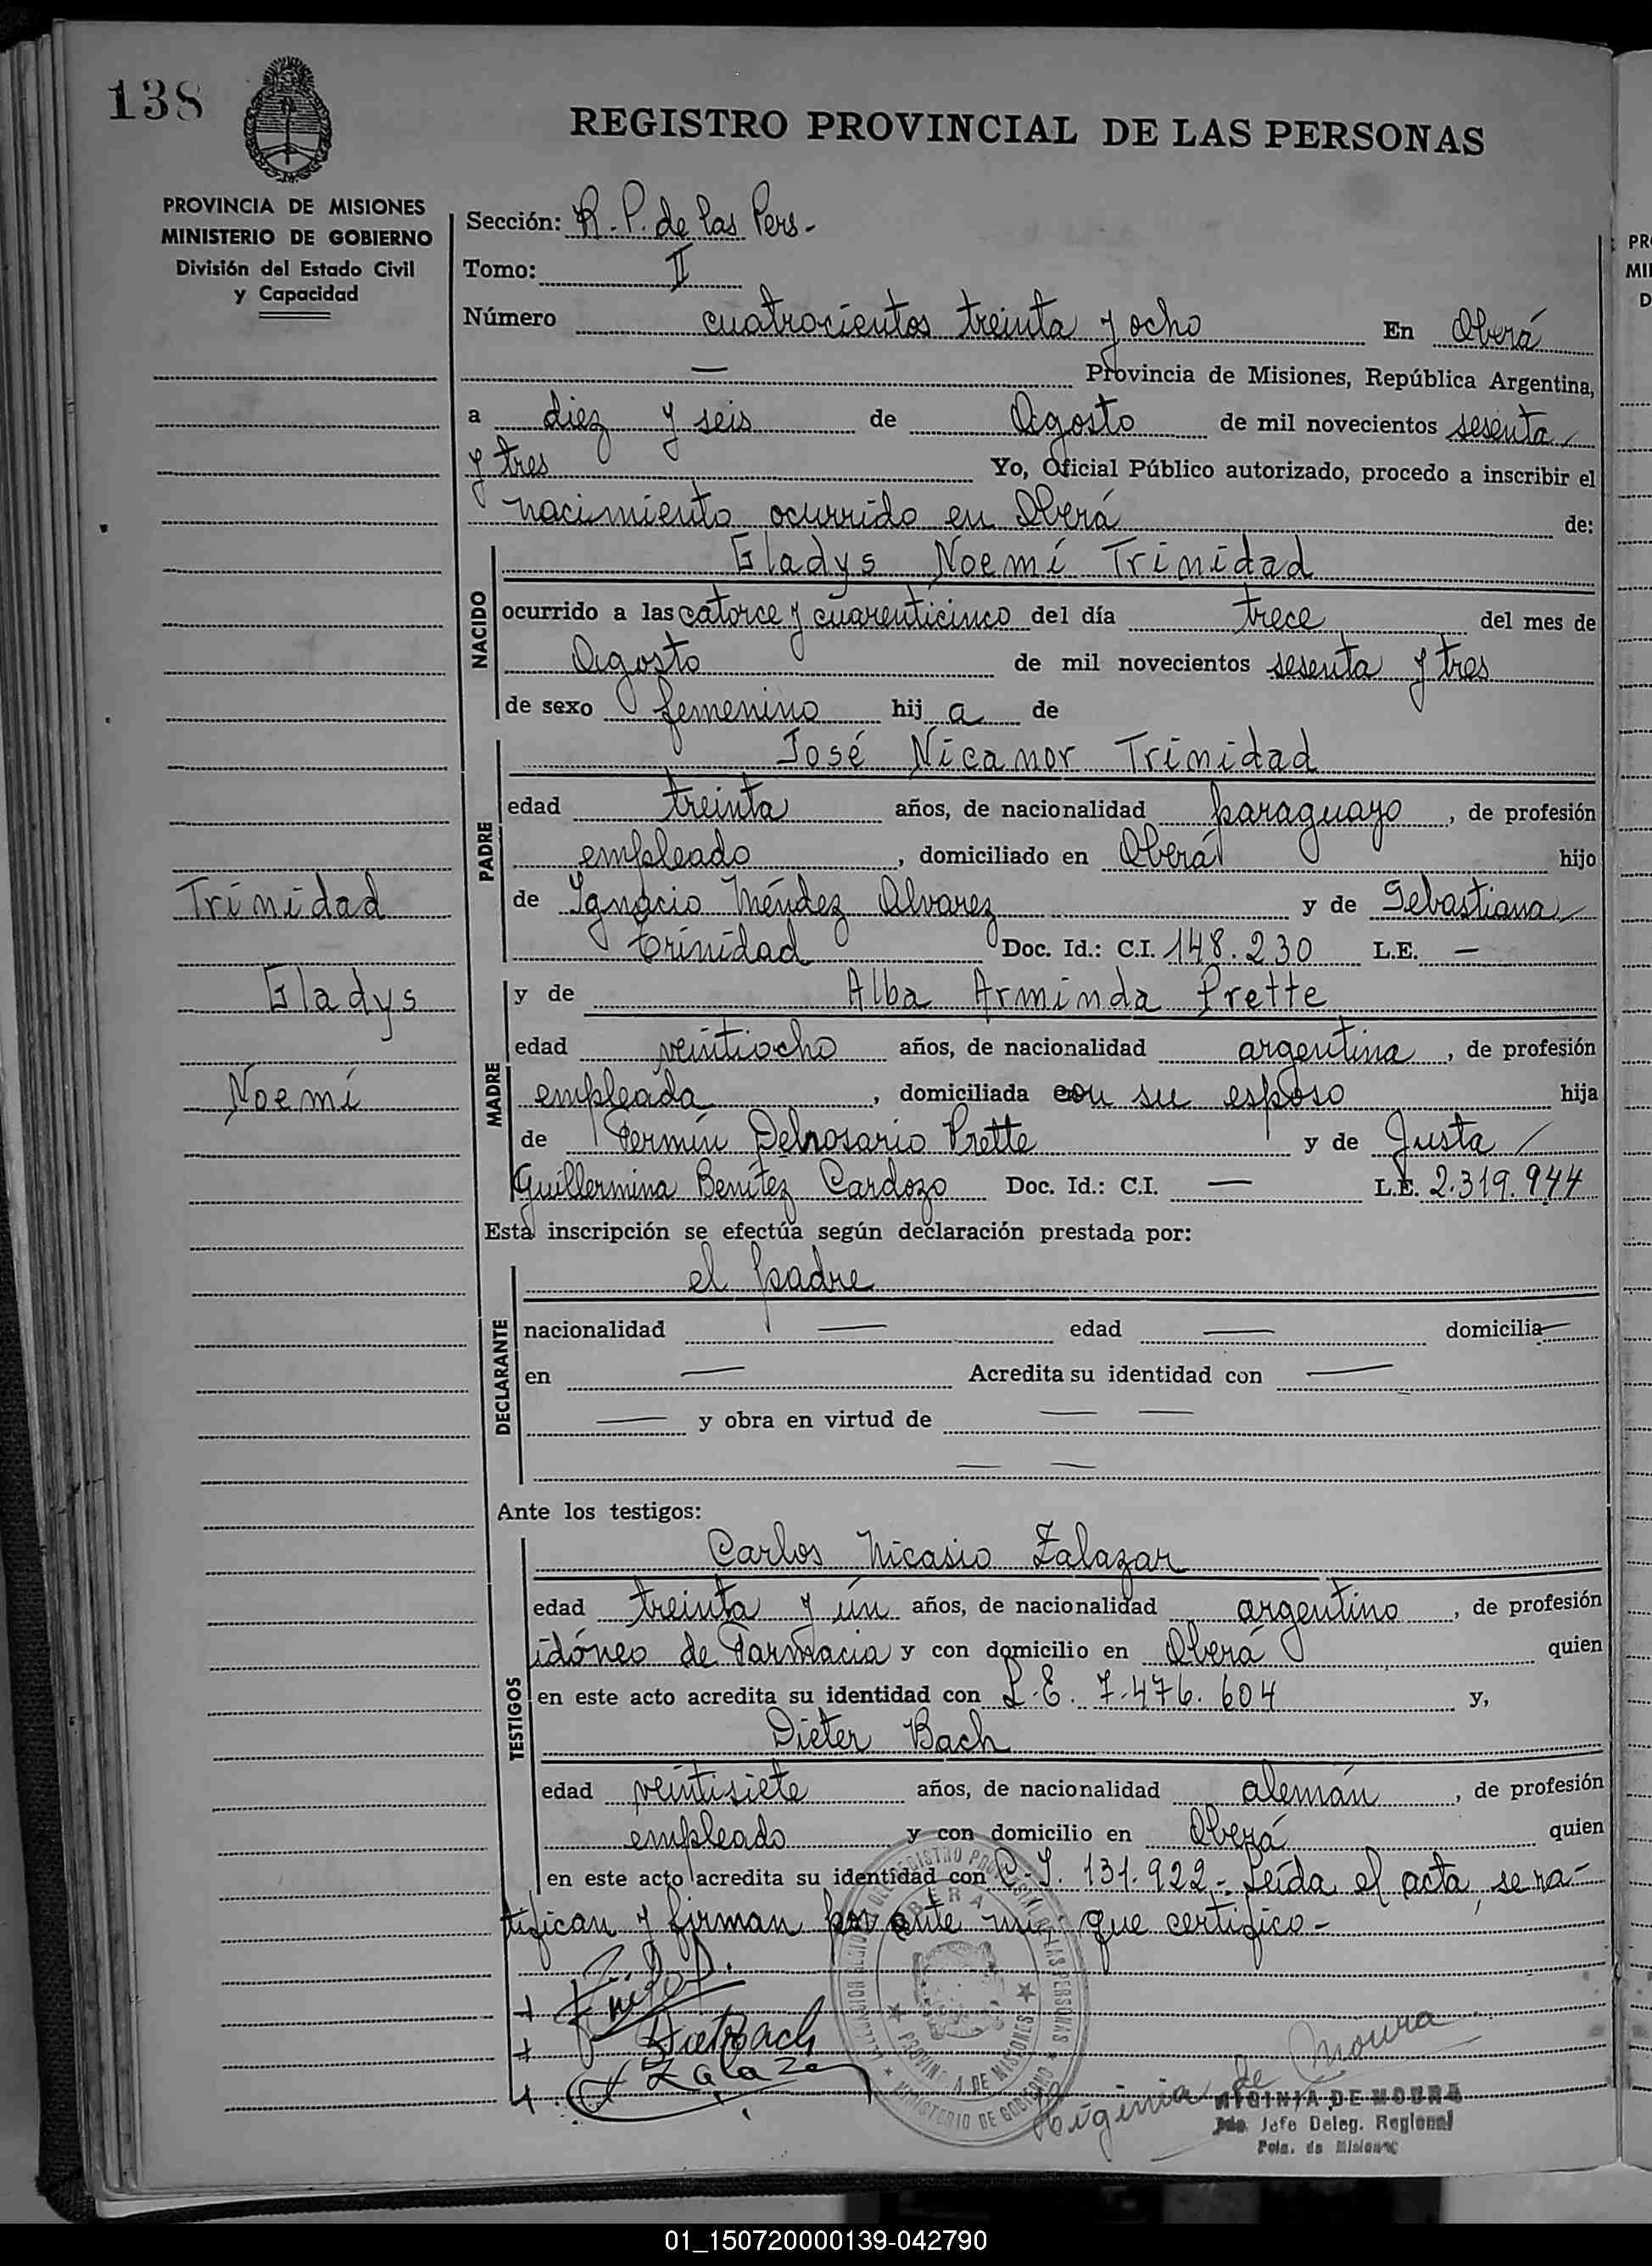 138
REGISTRO PROVINCIAL DE LAS PERSONAS
PROVINCIA DE MISIONES
MINISTERIO DE GOBIERNO
División del Estado Civil
y Capacidad
Sección: R. P. de las Pers.-
Tomo: II
Número cuatrocientos treinta y ocho En Oberá
— Provincia de Misiones, República Argentina,
a diez y seis de Agosto de mil novecientos sesenta
y tres Yo, Oficial Público autorizado, procedo a inscribir el
nacimiento ocurrido en Oberá de:
NACIDO
Gladys Noemí Trinidad
ocurrido a las catorce y cuarenticinco del día trece del mes de
Agosto de mil novecientos sesenta y tres
de sexo femenino hij a de
PADRE
José Nicanor Trinidad
edad treinta años, de nacionalidad paraguayo, de profesión
empleado, domiciliado en Oberá hijo
de Ignacio Méndez Alvarez y de Sebastiana
Trinidad Doc. Id.: C.I. 148.230 L.E. —
Trinidad
Gladys
Noemí
MADRE
y de Alba Arminda Prette
edad veintiocho años, de nacionalidad argentina, de profesión
empleada, domiciliada con su esposo hija
de Fermín Delrosario Prette y de Justa
Guillermina Benítez Cardozo Doc. Id.: C.I. — L.E. 2.319.944
Esta inscripción se efectúa según declaración prestada por:
DECLARANTE
el padre
nacionalidad — edad — domicilia—
en — Acredita su identidad con —
— y obra en virtud de — —
— —
Ante los testigos:
TESTIGOS
Carlos Nicasio Zalazar
edad treinta y ún años, de nacionalidad argentino, de profesión
idóneo de Farmacia y con domicilio en Oberá quien
en este acto acredita su identidad con L.E. 7.476.604 y,
Dieter Bach
edad veintisiete años, de nacionalidad alemán, de profesión
empleado y con domicilio en Oberá quien
en este acto acredita su identidad con C.I. 131.922.- Leída el acta, se ra-
tifican y firman por ante mí, que certifico-
Zalazar
PROVINCIA DE MISIONES
MINISTERIO DE GOBIERNO
Higinia de Moura
HIGINIA DE MOURA
Jefe Deleg. Regional
Pcia. de Misiones
PR
MI
D
01_150720000139-042790